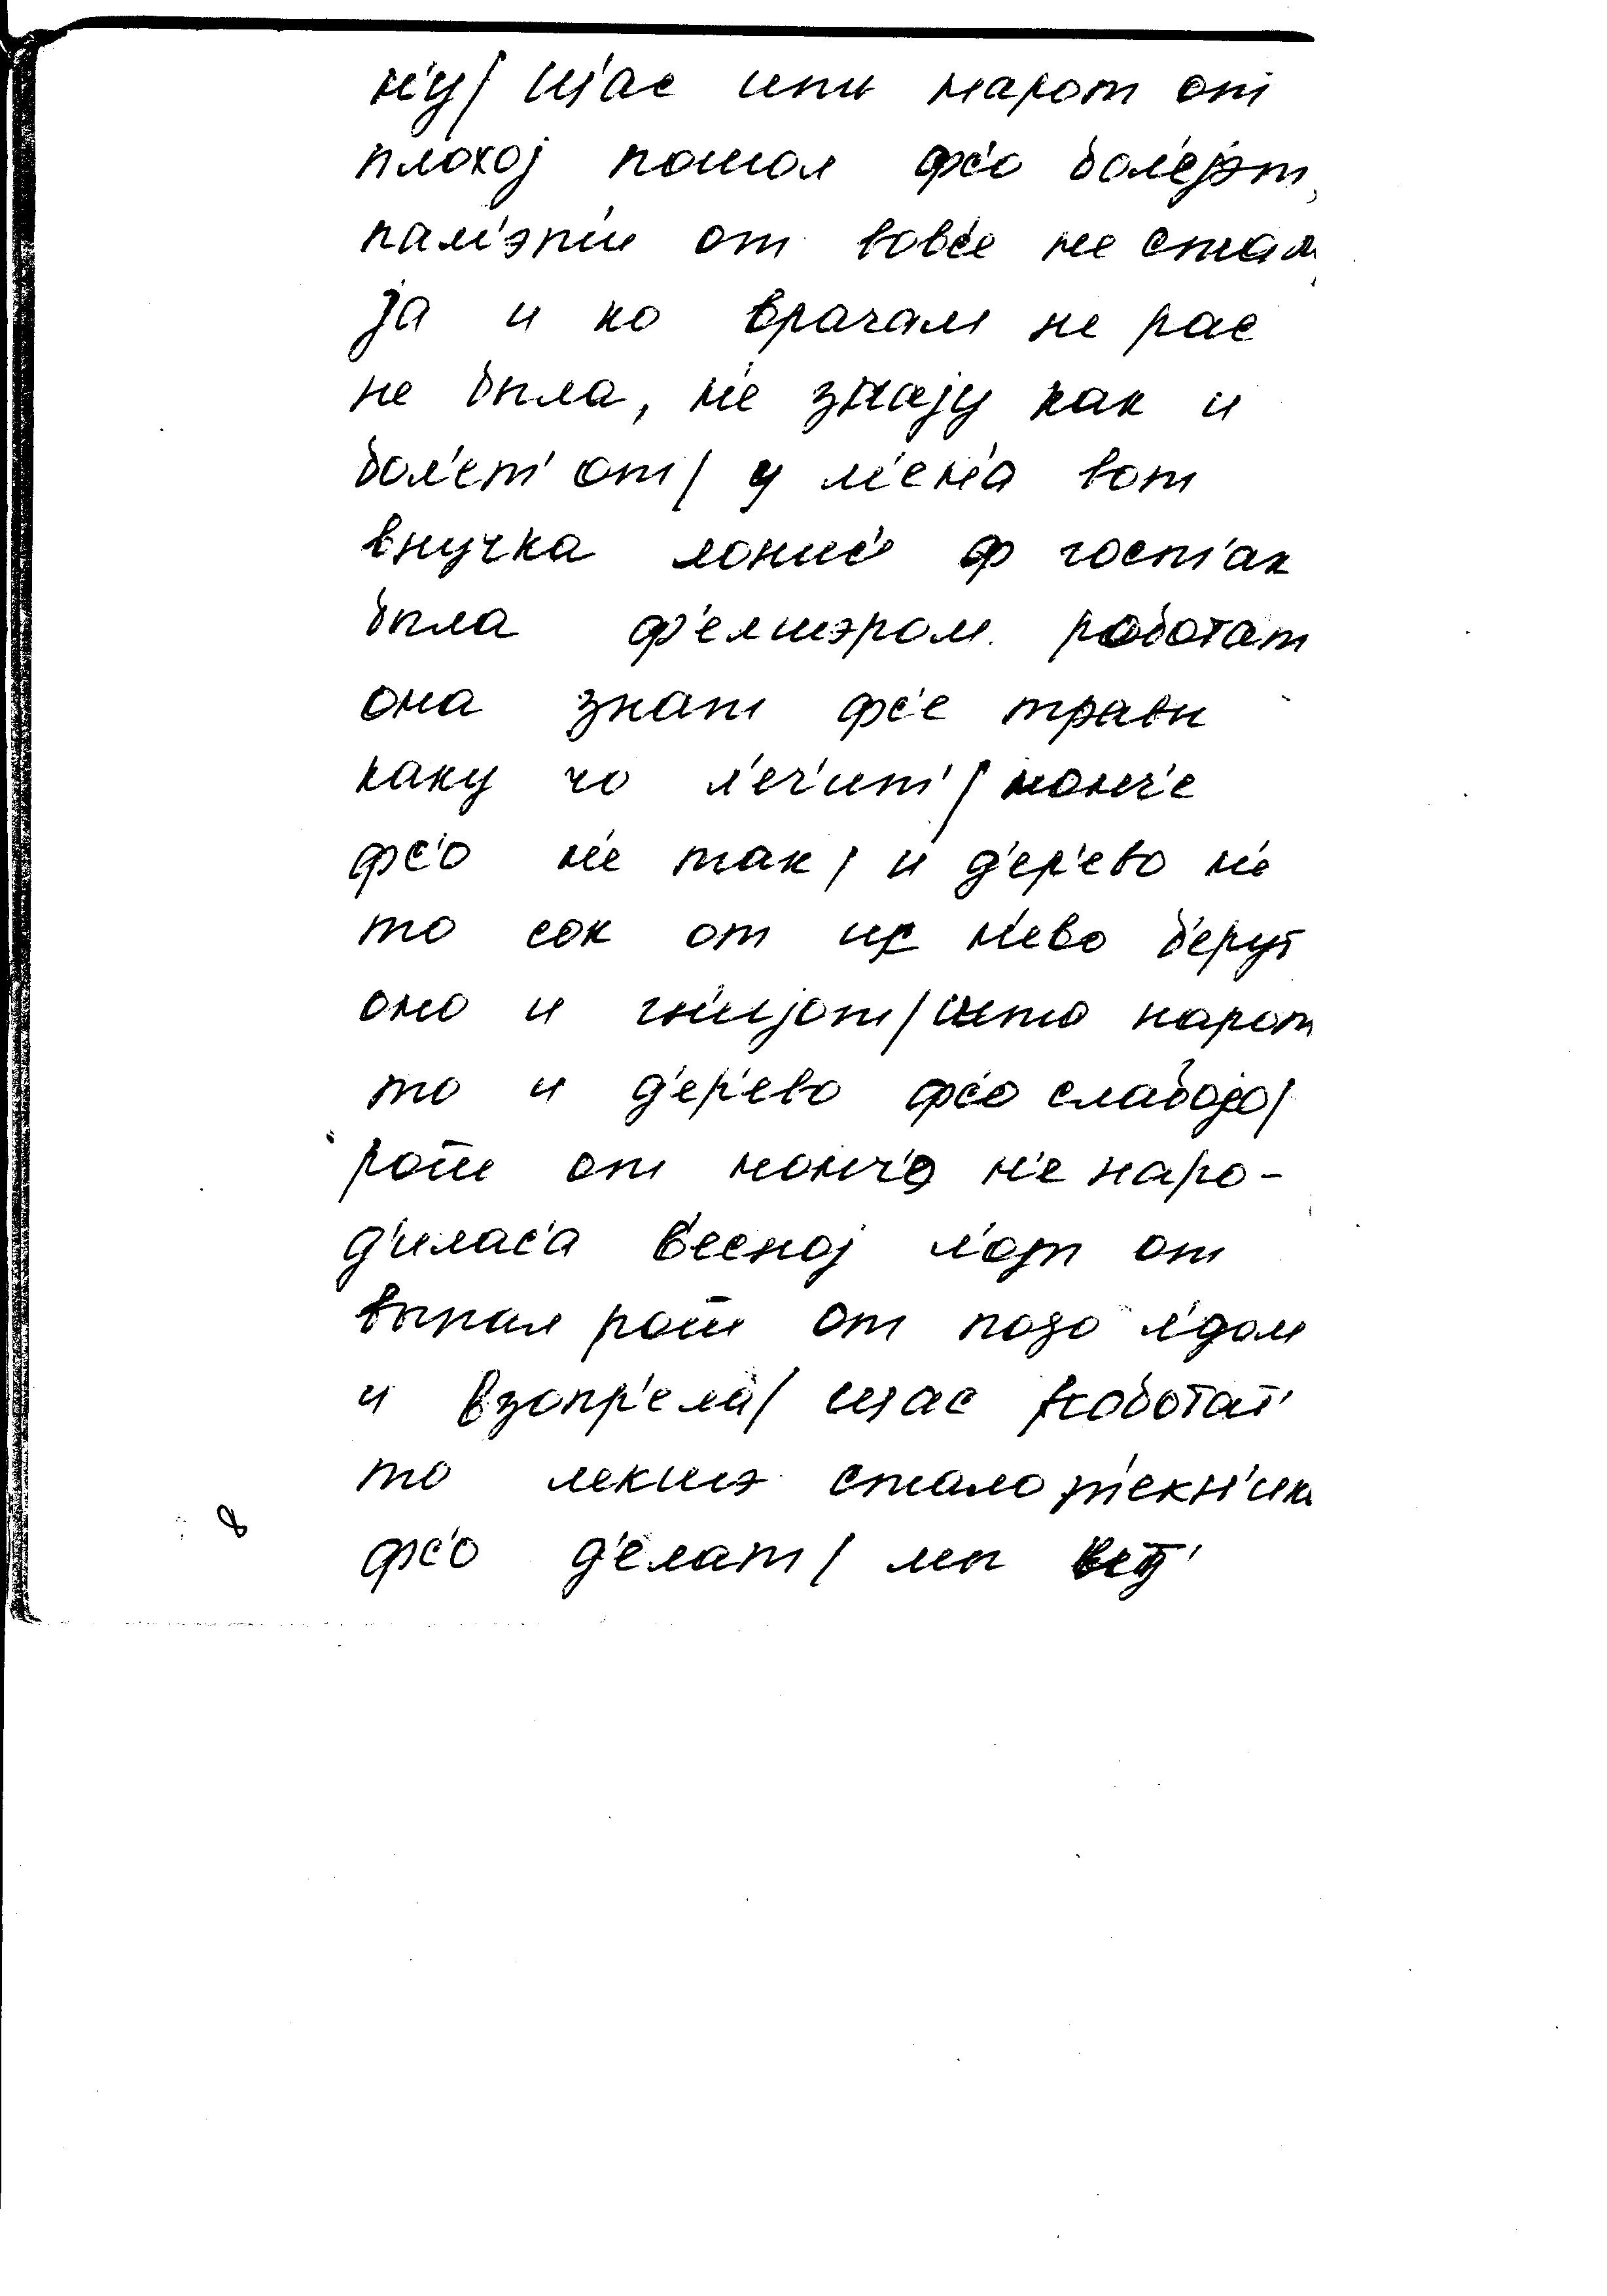 н'у/ шас ыты народ от
плохој пошол фс'о бол'ејэт,
пам'эт'и от вовс'е не стал
ја и ко врачам не рас
не была, н'е знају как и
бол'ет' от/ у м'ен'а вот
внучка лонис' ф гост'ах
была ф'елшэром работат
она знат фс'е травы
каку чо л'еч'ит'/ нонч'е
фс'о н'е так/ и д'ер'ево н'е
то сок от ис н'ево б'ерут
оно и гн'ијот/ што народ
то и д'ер'ево фс'о слабојо/
рош от нонч'э н'е наро-
д'илас'а в'есној л'от от
выпал рош от подо л'дом
и взопр'ела/ шас роботат'
то лекшэ стало т'екн'ика
фс'о д'елат/ мы вет'
8